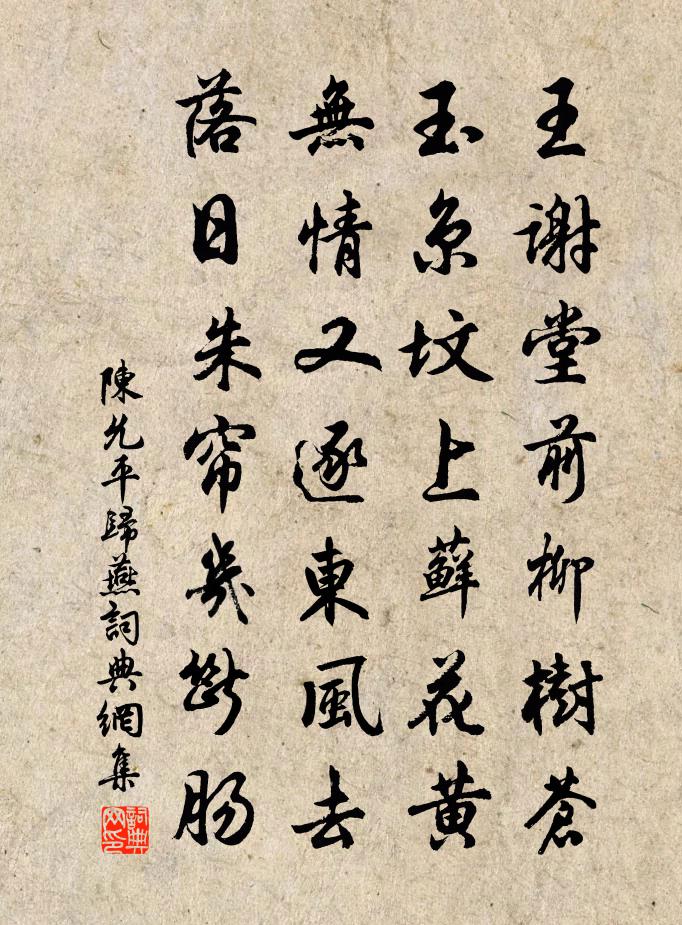 王謝堂前柳樹蒼
玉京墳上蘚花黄
無情又逐東風去
落日朱帘幾斷腸
陳允平歸燕詞典網集
詞典网印